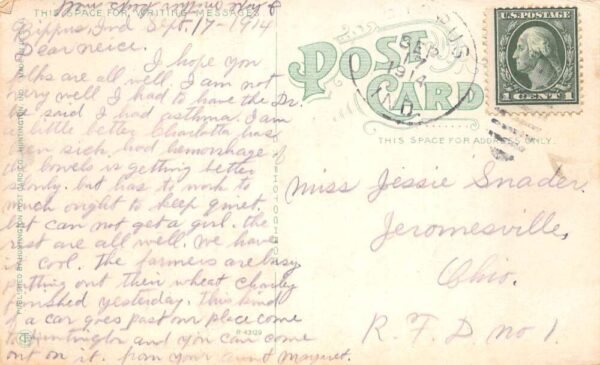 THIS SPACE FOR WRITING MESSAGES
Bippus, Ind Sept, 17-1914
Dear neice. I hope you
folks are all well, I am not
very well I had to have the Dr.
he said I had asthma. I am
a little better Charlotta has
been sick, had hemorhage of
the bowels is getting better
slowly. but has to work to
much ought to keep quiet.
but can not get a girl. the
rest are all well. we have
it cool. the farmers are busy
putting out their wheat Charley
finished yesterday. This kind
of a car goes past our place come
to Huntington and you can come
out on it. from your aunt Margaret.
PUBLISHED BY HUNTINGTON POST CARD CO., HUNTINGTON, IND.
R-43129
POST CARD
THIS SPACE FOR ADDRESS ONLY.
SEP
17
1914
IND.
U.S. POSTAGE
1 CENT 1
Miss Jessie Snader.
Jeromesville,
Ohio.
R. F. D. no 1.